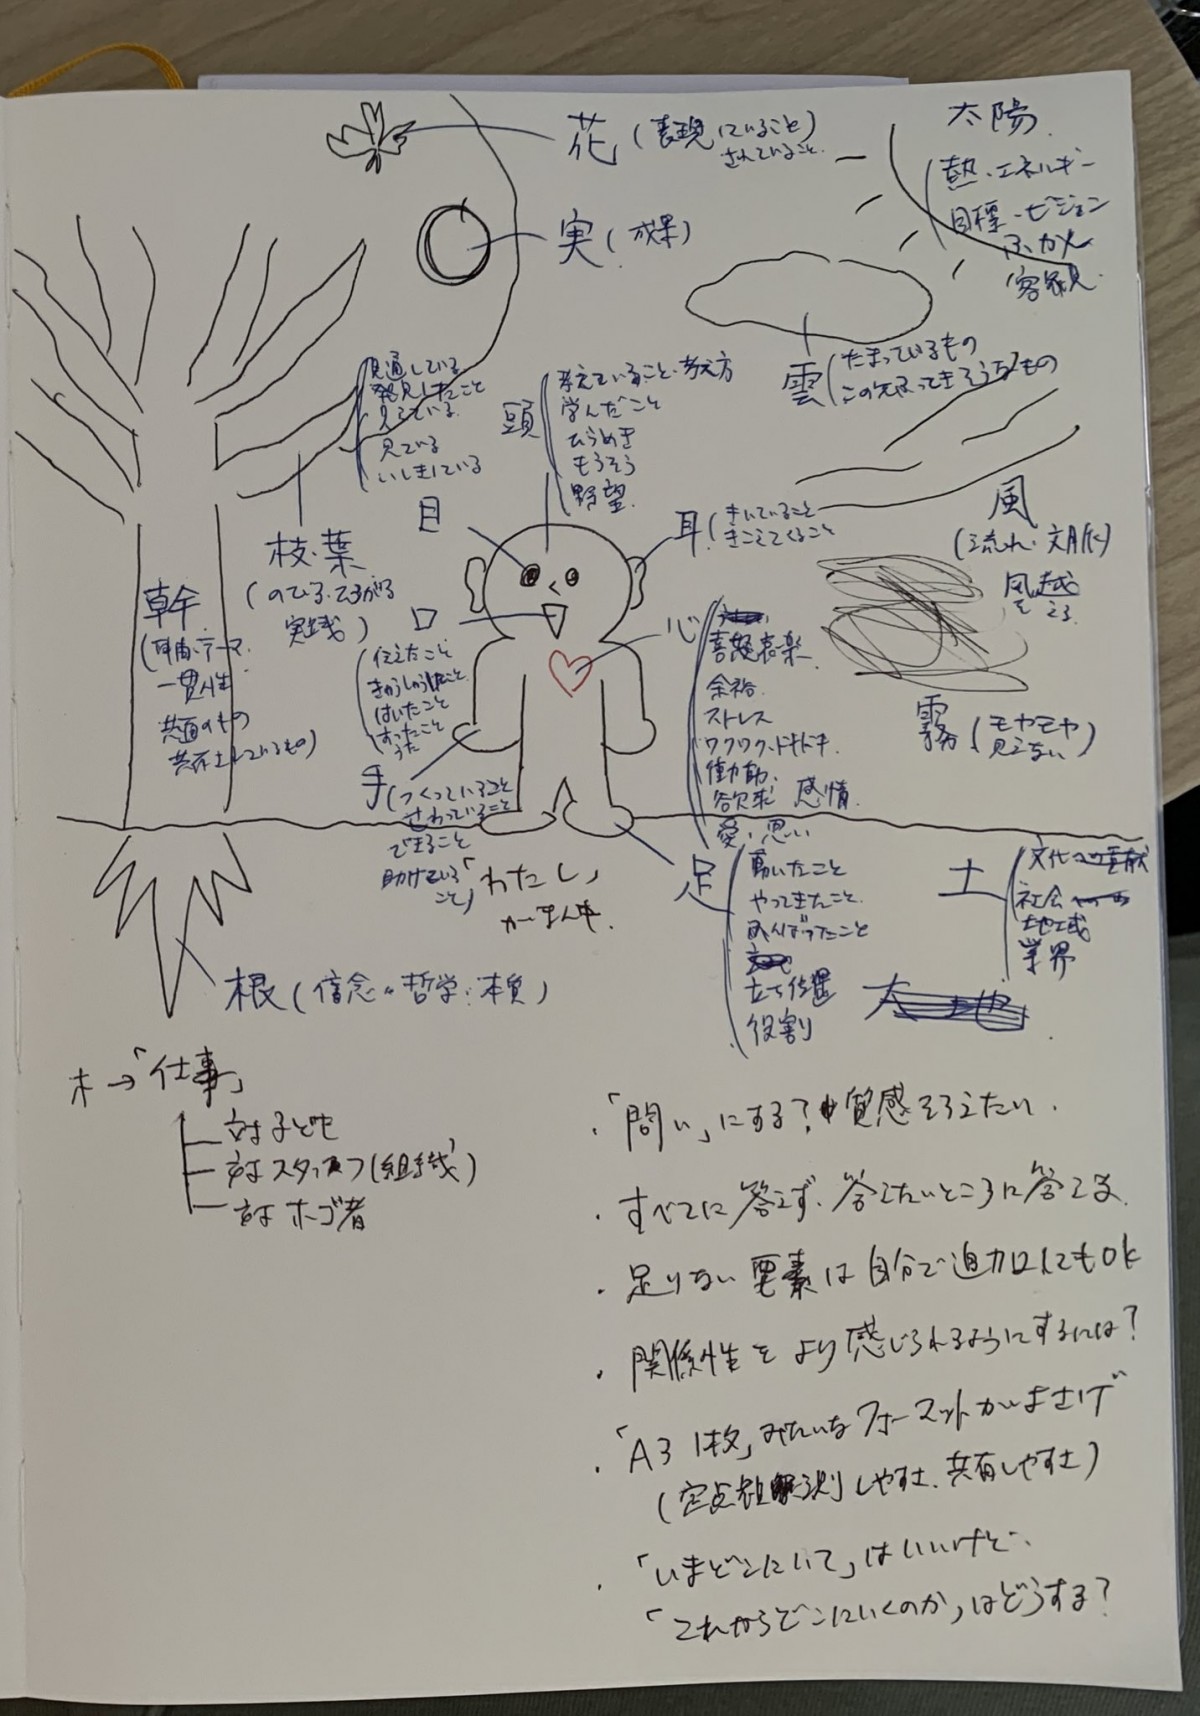 花(表現していること)
されていること
太陽
熱・エネルギー
目標・ビジョン
ふかん
客観
実(成果)
雲(たまっているもの
この先ふってきそうなもの
見通している
発見したこと
見えている
見ている
いしきしている
目
頭
考えていること・考え方
学んだこと
ひらめき
もうそう
野望
耳(きいていること
きこえてくること
風
(流れ・文脈)
風
を
枝・葉
実践)
幹
一貫性
共通のもの
口
伝えたこと
はいたこと
すったこと
うた
心
喜怒哀楽
余裕
ストレス
ワクワク・ドキドキ
衝動
欲求 感情
愛・思い
霧(モヤモヤ
見えない)
手(つくっていること
さわっていること
できること
助けている
こと)
「わたし」
がまん中
足
動いたこと
やってきたこと
がんばったこと
立ち位置
役割
土
文化
社会
地域
業界
大地
根(信念・哲学・本質)
木→「仕事」
対子ども
対スタッフ(組織)
対ホゴ者
・「問い」にする?質感そろえたい.
・すべてに答えず、答えたいところに答える
・足りない要素は自分で追加してもOK
・関係性をより感じられるようにするには?
・「A3 1枚」みたいなフォーマットがよさげ
(定点観測しやすさ、共有しやすさ)
・「いまどこにいて」はいいけど、
「これからどこにいくのか」はどうする?